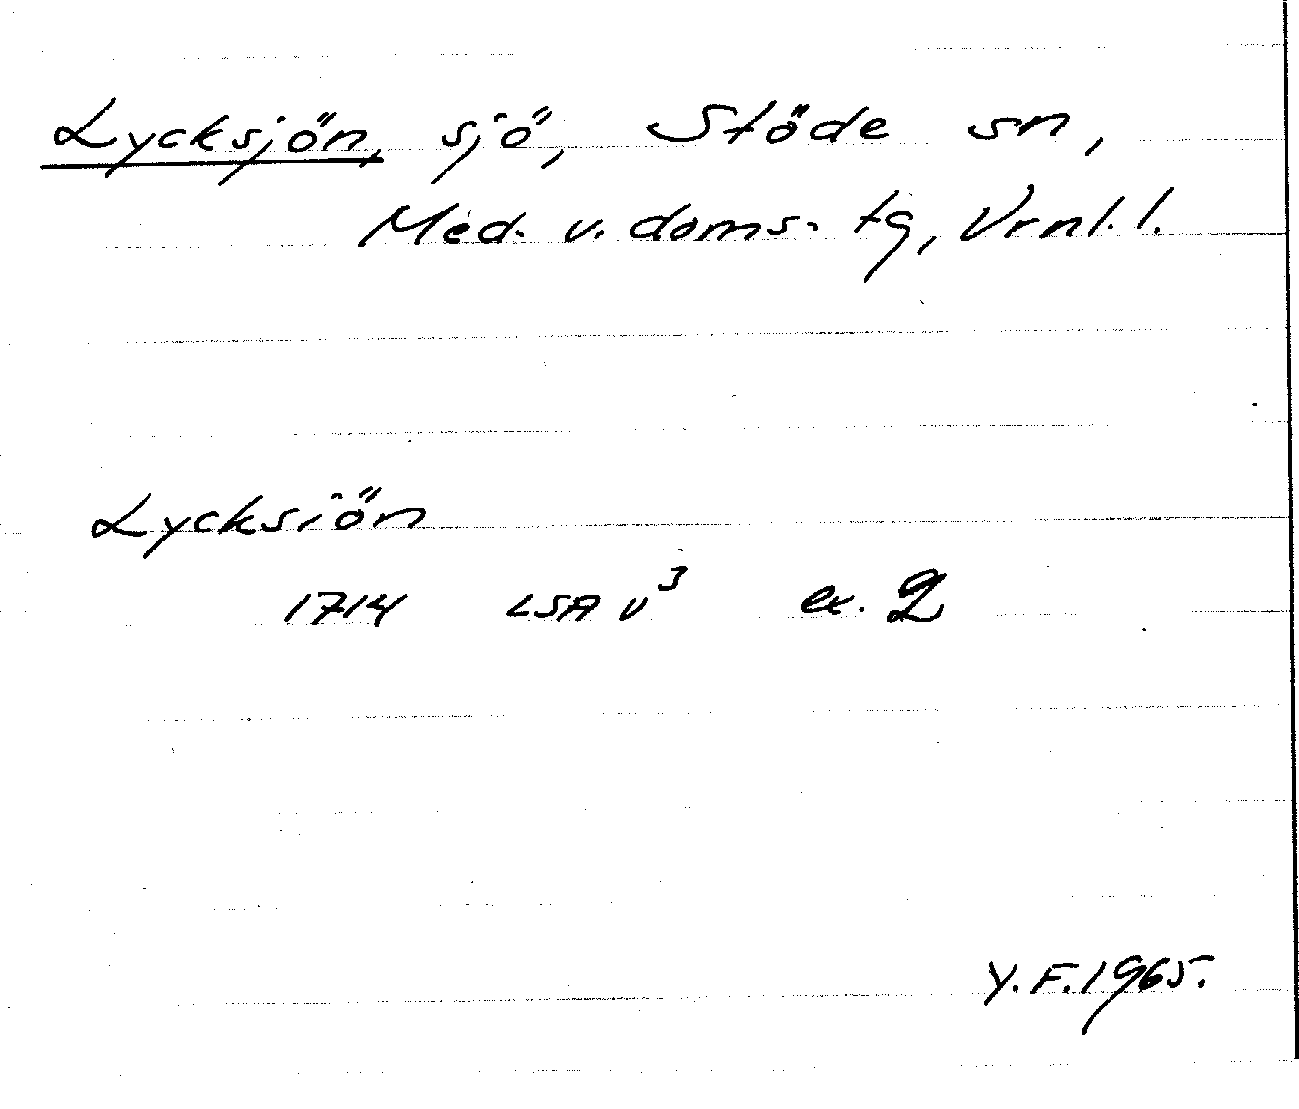 Lycksjön, sjö, Stöde sn,
Med. v. doms. tg, Vrnl. l.
Lycksiön
1714 LSA v³ ex. 2
Y. F. 1965.